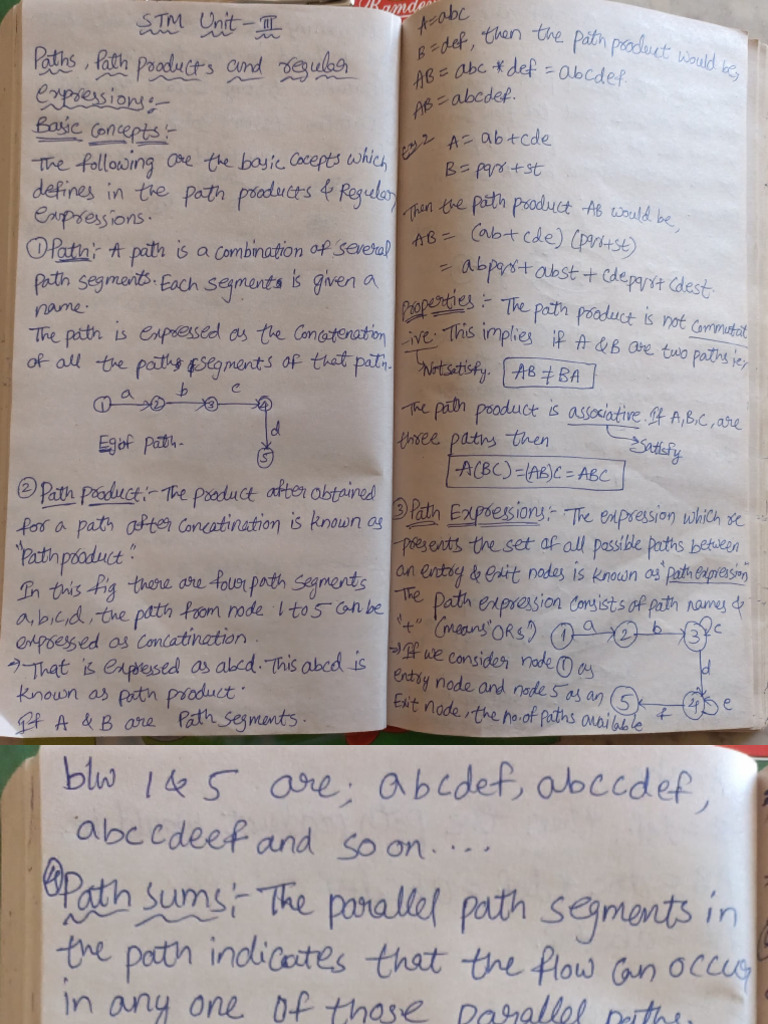 STM Unit - III
Paths, Path products and regular
expressions:-
Basic concepts:-
The following are the basic cocepts which
defines in the path products & Regular
expressions.
① Path:- A path is a combination of several
path segments. Each segments is given a
name.
The path is expressed as the concatenation
of all the paths segments of that path.
1 a 2 b 3 c 4
d
5
Eg of path.
② Path product:- The product after obtained
for a path after concatination is known as
"Path product".
In this fig there are four path segments
a,b,c,d, the path from node 1 to 5 can be
expressed as concatination.
→ That is expressed as abcd. This abcd is
known as path product.
If A & B are Path segments.
Ramdev
A=abc
B=def, then the path product would be,
AB = abc * def = abcdef.
AB = abcdef.
Ex:2 A = ab+cde
B = pqr+st
Then the path product AB would be,
AB = (ab+cde) (pqr+st)
= abpqr+abst+cdepqr+cdest.
Properties:- The path product is not commutat
-ive. This implies if A & B are two paths ie,
Not satisfy. AB ≠ BA
The path product is associative. If A,B,C, are
three paths then Satisfy
A(BC)=(AB)C=ABC
③ Path Expressions:- The expression which re
presents the set of all possible paths between
an entry & exit nodes is known as "path expression"
The path expression consists of path names &
"+" (means "ORs") 1 a 2 b 3 c
→ If we consider node ① as d
entry node and node 5 as an 5 f 4 e
Exit node, the no.of paths available
b/w 1 & 5 are; abcdef, abccdef,
abccdeef and so on....
④ Path sums:- The parallel path segments in
the path indicates that the flow can occur
in any one of those parallel paths.